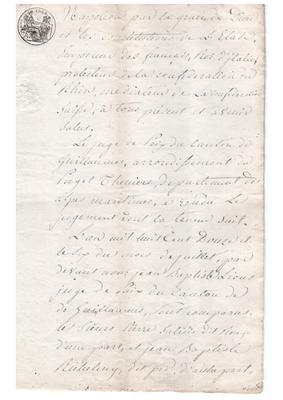 Napoléon par la grace de Dieu
et les Constitutions de L'Etat,
Empereur des français, Roi d'italie,
protecteur de la confédération du
Rhin, mediateur de La confédération
Suisse, à tous présent et à venir
Salut.
Le juge de Paix du Canton de
Guillaumes, arrondissement du
Puget Theniers, département des
alpes maritimes, à rendu le
jugement dont la teneur suit.
L'an mil huit Cent Douze et
le six du mois de juillet, par
devant nous jean Baptiste
juge de Paix du Canton de
de Guillaumes, sont comparus
les Sieurs Pierre dit
d'une part, et jean Baptiste
dit d'autre part,